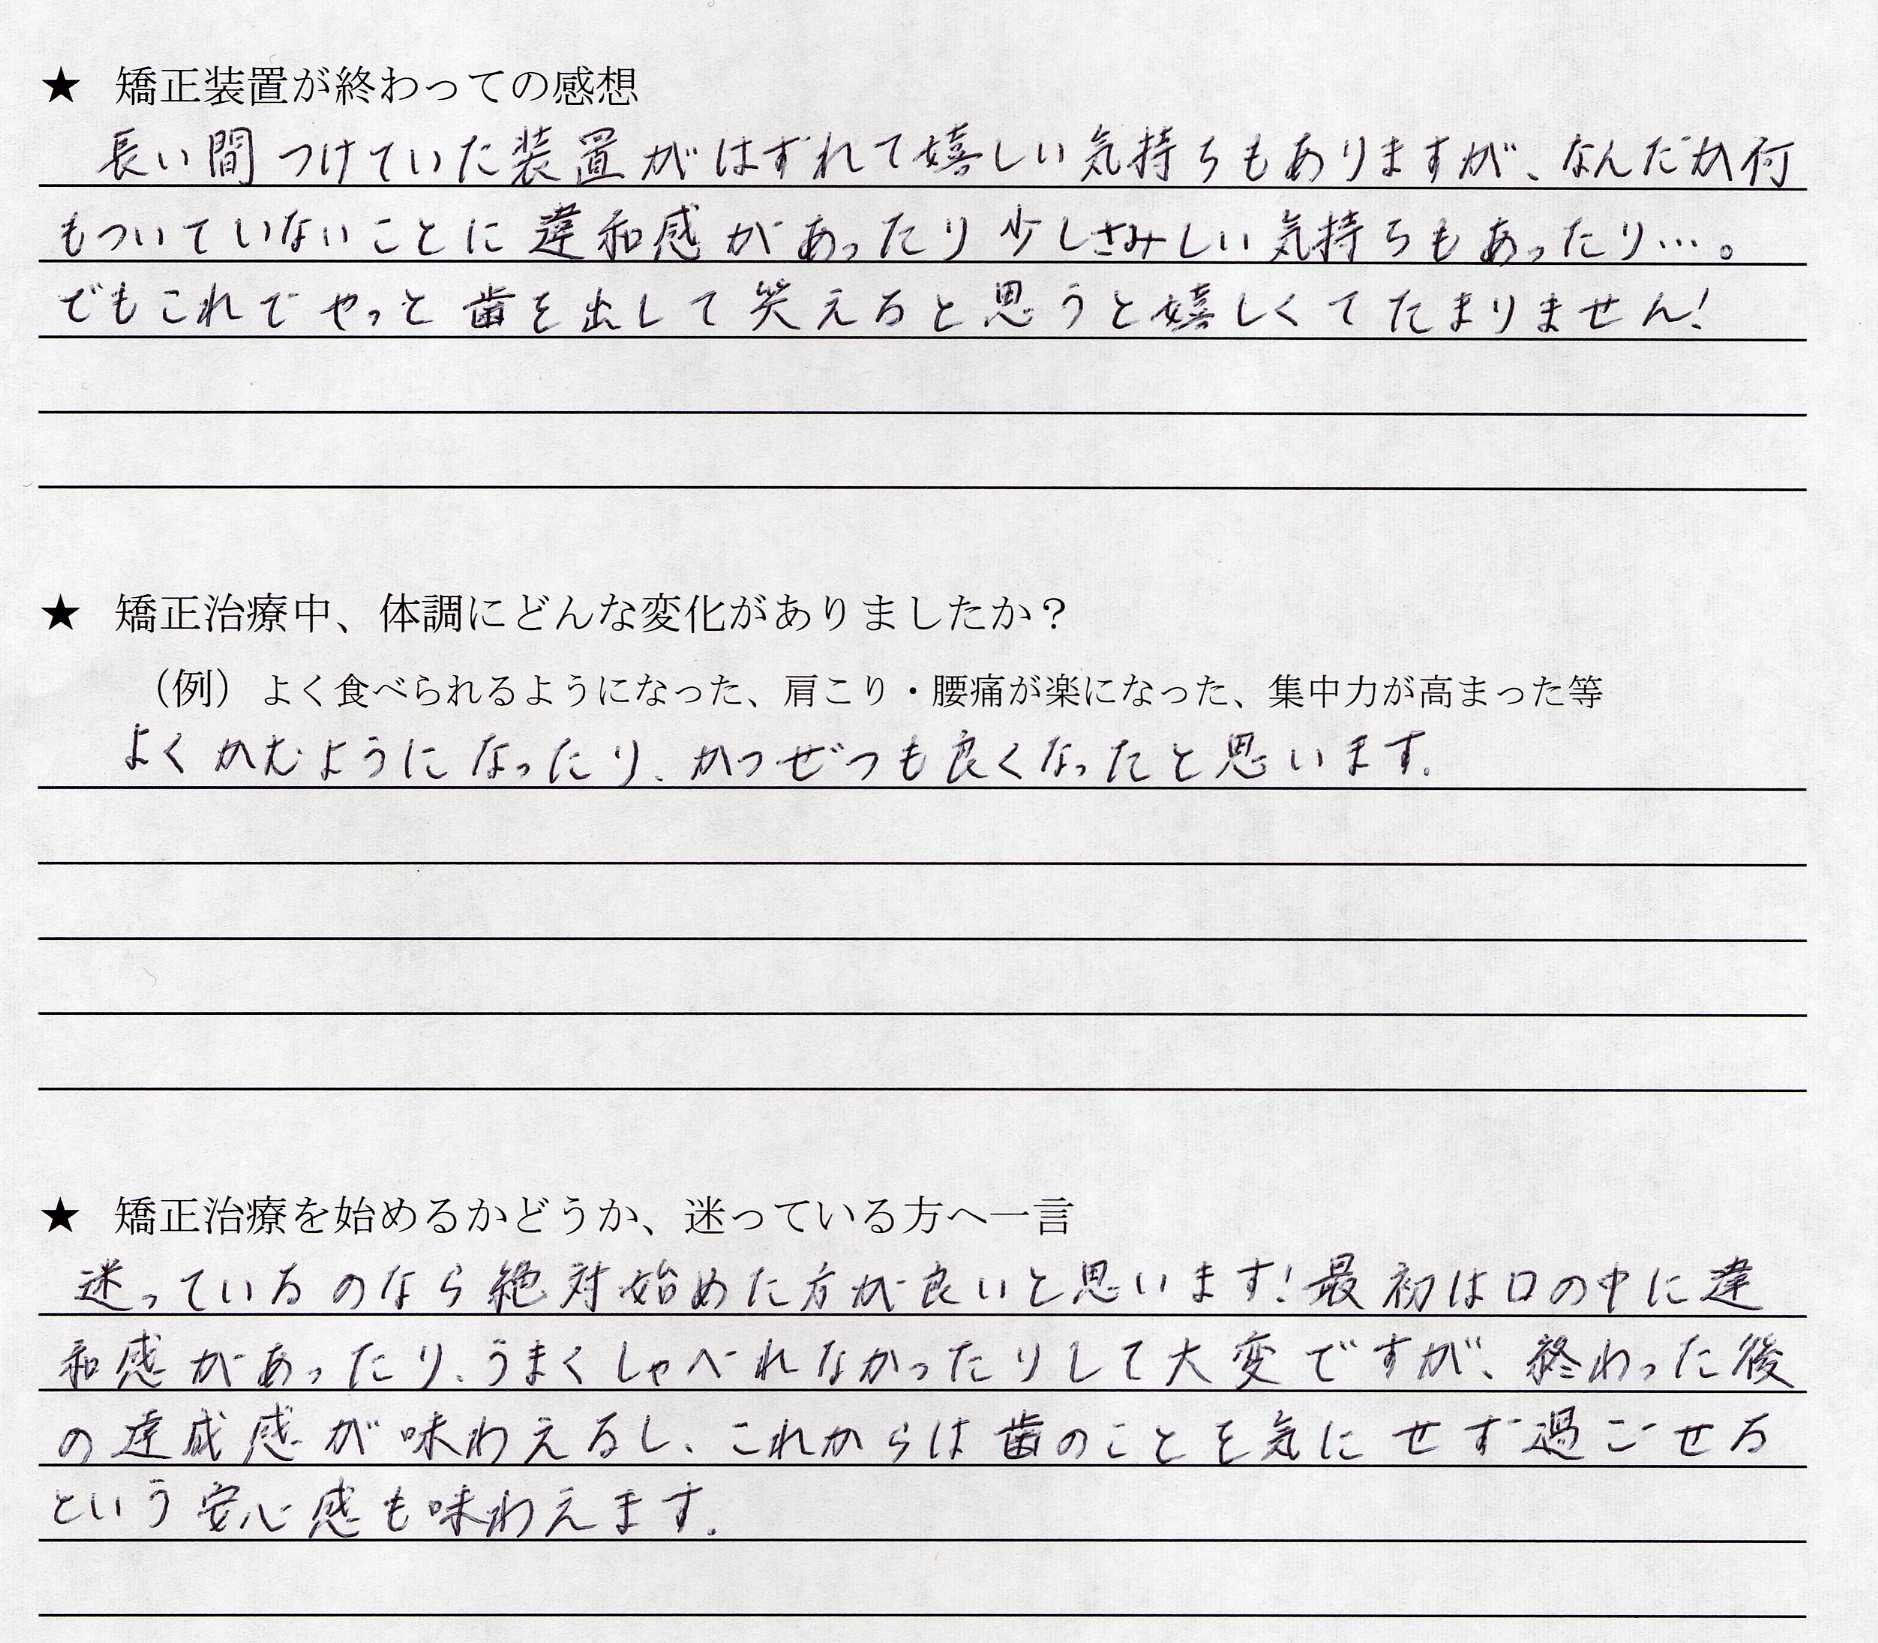 ★ 矯正装置が終わっての感想
長い間つけていた装置がはずれて嬉しい気持ちもありますが、なんだか何
もついていないことに違和感があったり少しさみしい気持ちもあったり…。
でもこれでやっと歯を出して笑えると思うと嬉しくてたまりません!
★ 矯正治療中、体調にどんな変化がありましたか？
（例）よく食べられるようになった、肩こり・腰痛が楽になった、集中力が高まった等
よくかむようになったり、かつぜつも良くなったと思います。
★ 矯正治療を始めるかどうか、迷っている方へ一言
迷っているのなら絶対始めた方が良いと思います!最初は口の中に違
和感があったり、うまくしゃべれなかったりして大変ですが、終わった後
の達成感が味わえるし、これからは歯のことを気にせず過ごせる
という安心感も味わえます。